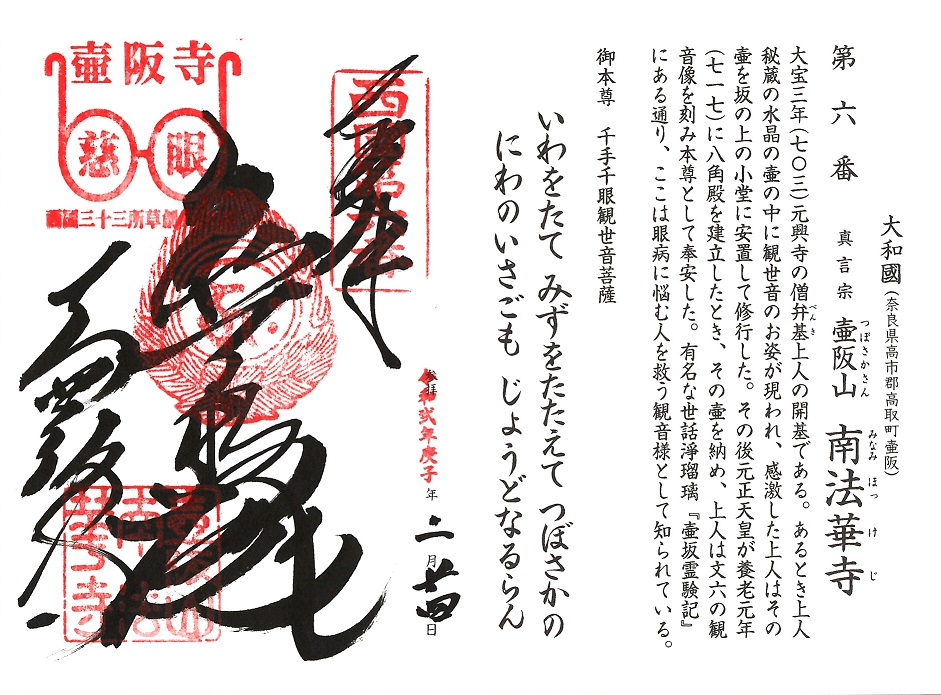 第六番
大和國(奈良県高市郡高取町壷阪)
真言宗 壷阪山 南法華寺
つぼさかさん みなみほっけじ
大宝三年(七〇三)元興寺の僧弁基上人の開基である。あるとき上人
べんき
秘蔵の水晶の壷の中に観世音のお姿が現われ、感激した上人はその
壷を坂の上の小堂に安置して修行した。その後元正天皇が養老元年
(七一七)に八角殿を建立したとき、その壷を納め、上人は文六の観
音像を刻み本尊として奉安した。有名な世話浄瑠璃『壷坂霊験記』
にある通り、ここは眼病に悩む人を救う観音様として知られている。
御本尊 千手千眼観世音菩薩
いわをたて みずをたたえて つぼさかの
にわのいさごも じょうどなるらん
奉拝
西國第六番
参拝
令和弐年庚子年二月廿四日
壷阪寺
慈眼
西國三十三所草創